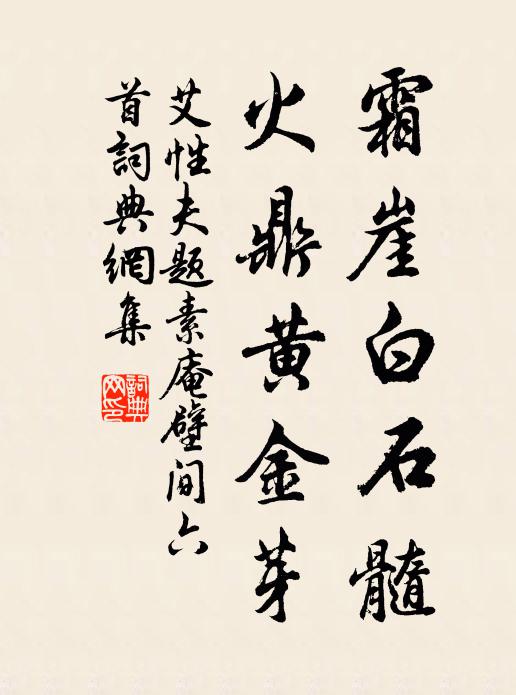 霜崖白石髓
火鼎黄金芽
艾性夫题素庵壁间六
首詞典網集
詞典
网印